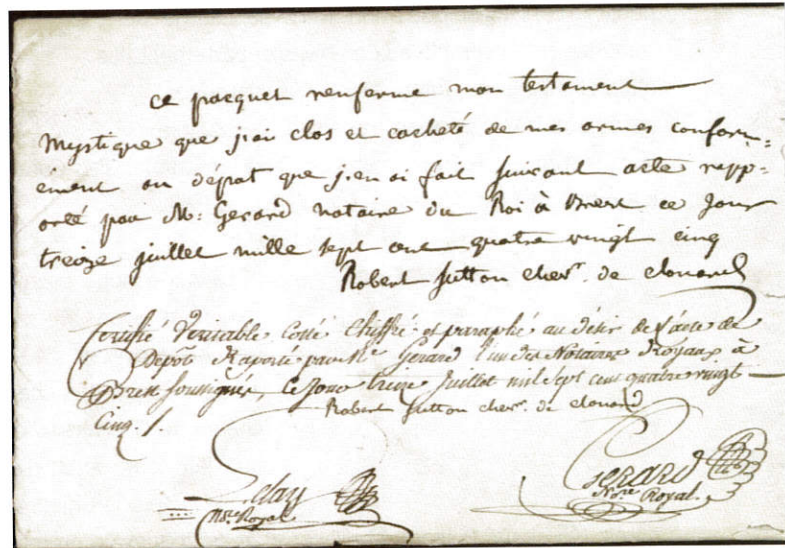 ce pacquet renferme mon testament
Mystique que j'ai clos et cacheté de mes armes conform-
ément au dépat que j'en ai fait suivant acte rapp-
orté par M: Gerard notaire du Roi à Brest ce jour
treize juillet mille sept cent quatre vingt cinq
Robert Sutton cher. de clonard
Certifié Veritable Cotté Chiffré et paraphé au désir de l'acte de
Dépôt Raporté par Me Gerard l'un des Notaires Royaux à
Brest soussignés, ce jour treize Juillet mil sept cent quatre vingt
Cinq ./.
Robert Sutton cher. de clonard
Nre Royal
Gerard
Nore Royal.